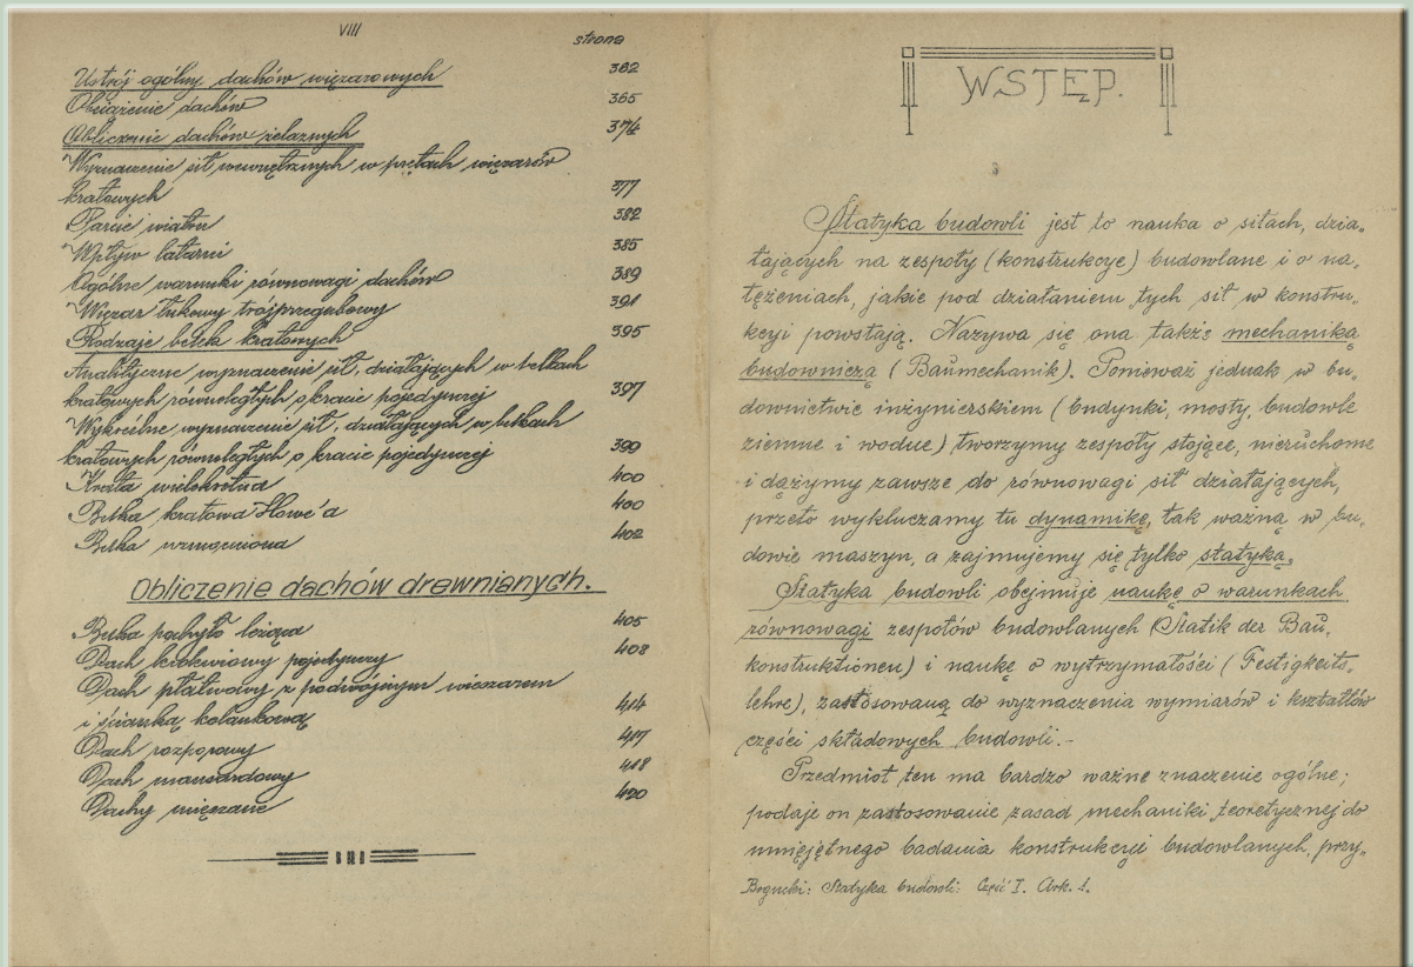 VIII
strona
Ustrój ogólny dachów więzarowych 362
Obciążenie dachów 365
Obliczenie dachów żelaznych 374
Wyznaczenie sił wewnętrznych w prętach więzarów
kratowych 377
Parcie wiatru 382
Wpływ latarni 385
Ogólne warunki równowagi dachów 389
Więzar łukowy trójprzegubowy 391
Rodzaje belek kratowych 395
Analityczne wyznaczenie sił, działających w belkach
kratowych równoległych o kracie pojedynczej 397
Wykreślne wyznaczenie sił, działających w belkach
kratowych równoległych o kracie pojedynczej 399
Krata wielokrotna 400
Belka kratowa Howe'a 400
Belka wzmocniona 402
Obliczenie dachów drewnianych.
Belka pochyło leżąca 405
Dach krokwiowy pojedynczy 408
Dach płatwowy z podwójnym wieszarem
i ścianką kolankową 414
Dach rozporowy 417
Dach mansardowy 418
Dachy mięszane 420
WSTĘP.
Statyka budowli jest to nauka o siłach, dzia„
łających na zespoły (konstrukcye) budowlane i o na„
tężeniach, jakie pod działaniem tych sił w konstru„
kcyi powstają. Nazywa się ona także mechaniką
budowniczą (Baumechanik). Ponieważ jednak w bu„
downictwie inżynierskiem (budynki, mosty, budowle
ziemne i wodne) tworzymy zespoły stojące, nieruchome
i dążymy zawsze do równowagi sił działających,
przeto wykluczamy tu dynamikę, tak ważną w bu„
dowie maszyn, a zajmujemy się tylko statyką.
Statyka budowli obejmuje naukę o warunkach
równowagi zespołów budowlanych (Statik der Bau„
konstruktionen) i naukę o wytrzymałości (Festigkeits„
lehre), zastosowaną do wyznaczenia wymiarów i kształtów
części składowych budowli.-
Przedmiot ten ma bardzo ważne znaczenie ogólne;
podaje on zastosowanie zasad mechaniki teoretycznej do
umiejętnego badania konstrukcyi budowlanych, przy„
Bogucki: Statyka budowli: Część I. Ark. 1.